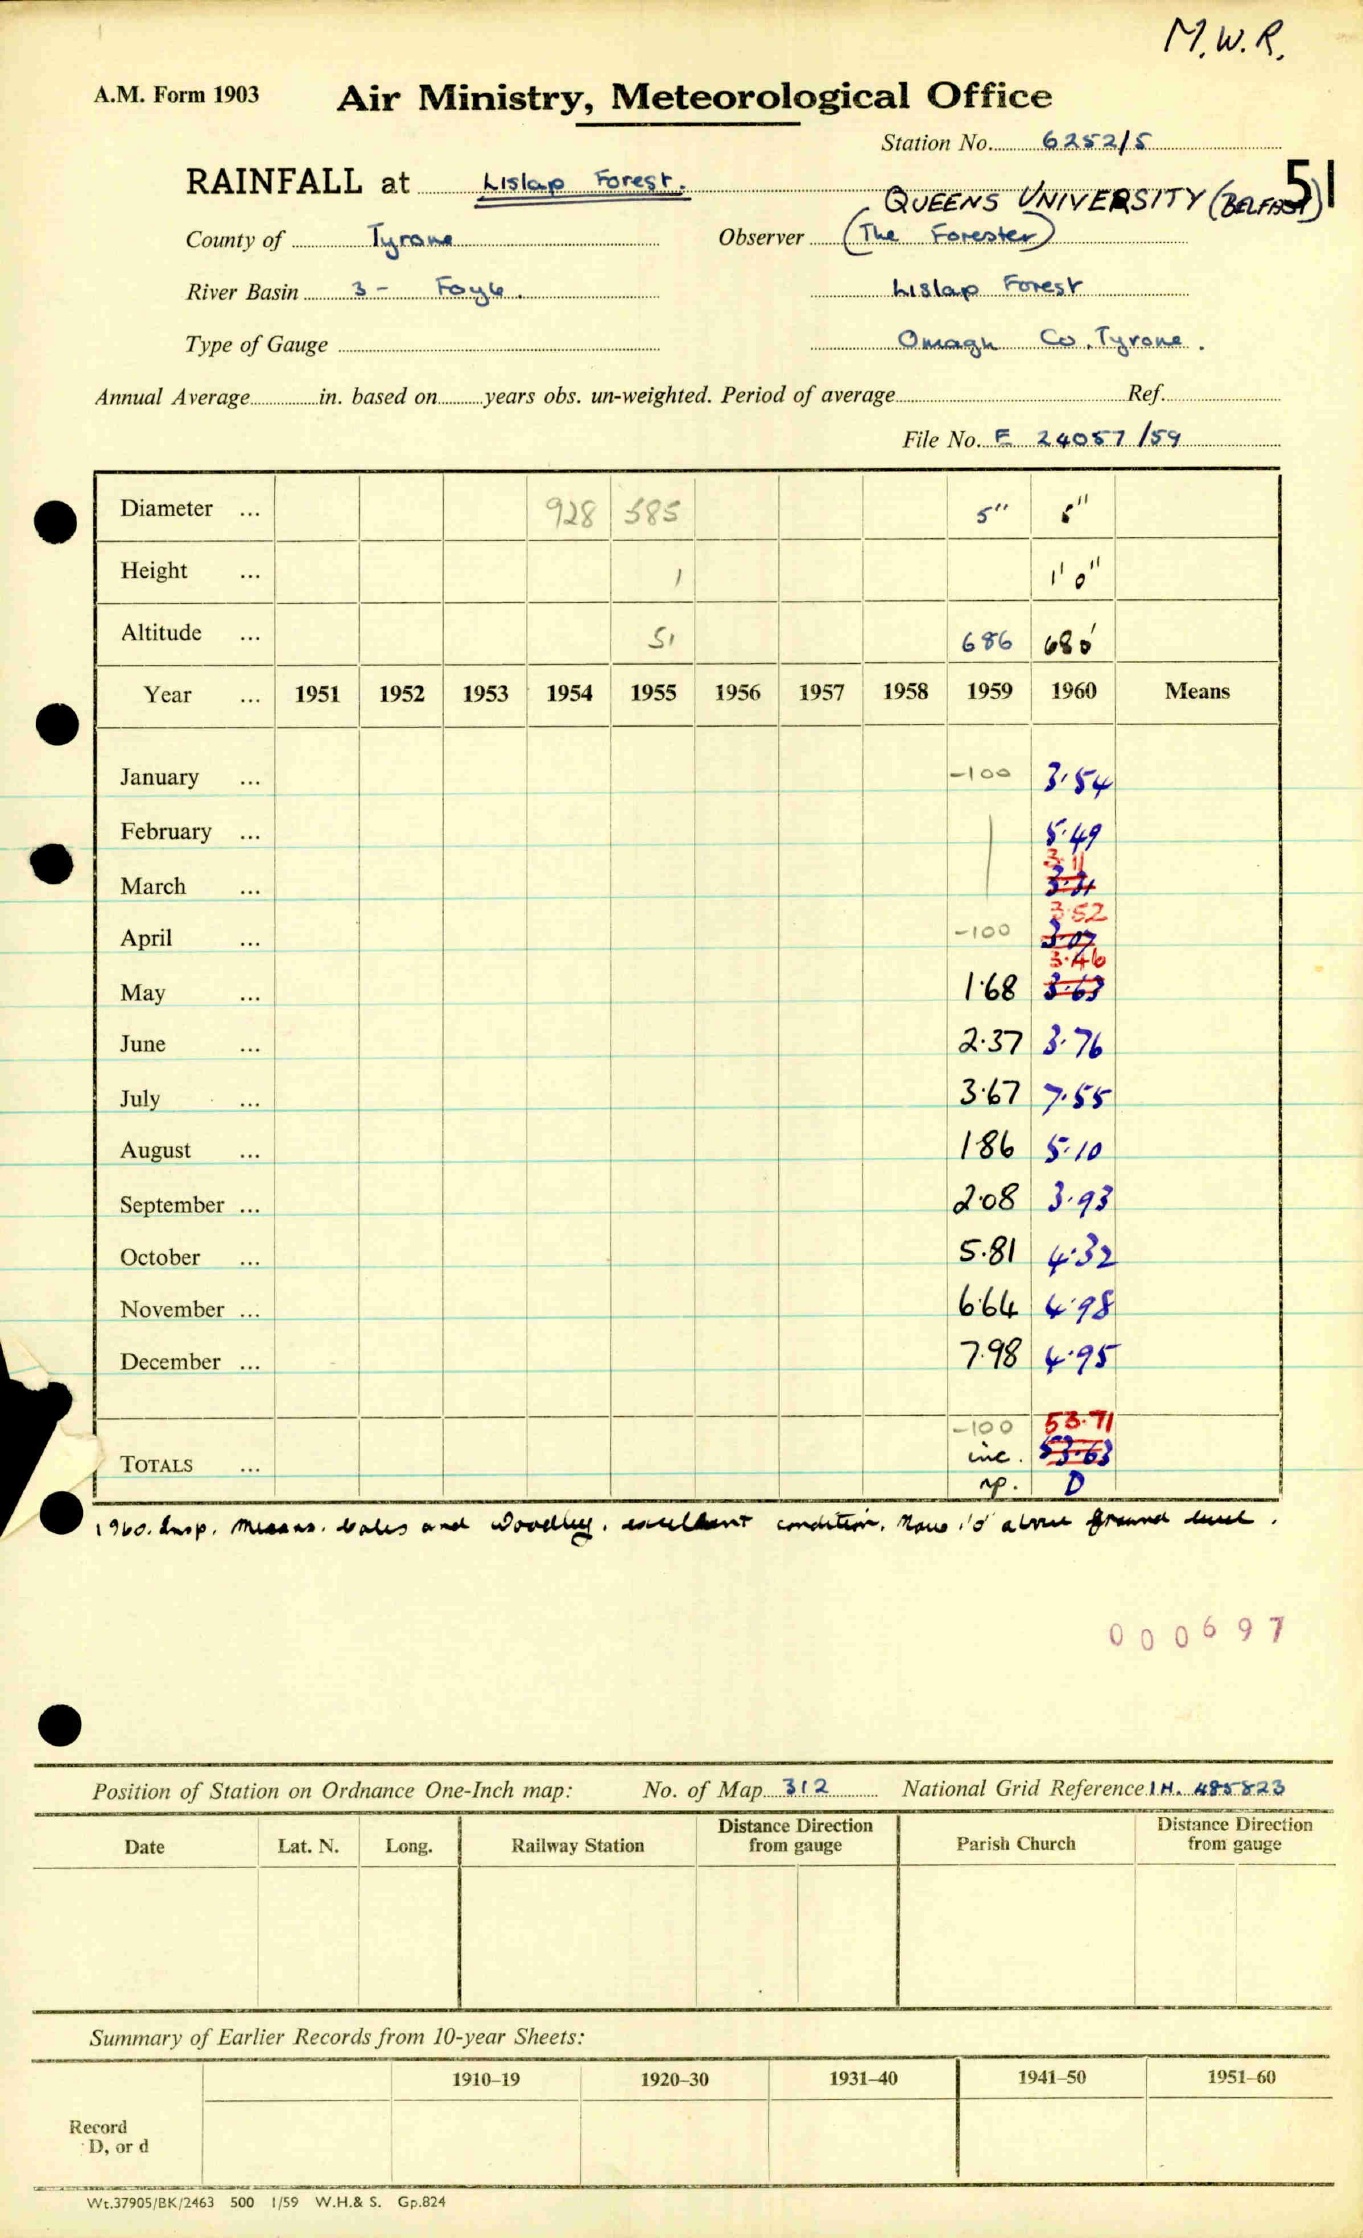 M.W.R.
A.M. Form 1903 Air Ministry, Meteorological Office
Station No. 6252/5
RAINFALL at Lislap Forest. 51
QUEENS UNIVERSITY (BELFAST)
County of Tyrone Observer (The Forester)
River Basin 3 - Foyle. Lislap Forest
Type of Gauge Omagh Co. Tyrone.
Annual Average in. based on years obs. un-weighted. Period of average Ref.
File No. E 24057/59
Diameter ... 928 585 5" 5"
Height ... 1 1' 0"
Altitude ... 51 686 680'
Year ... 1951 1952 1953 1954 1955 1956 1957 1958 1959 1960 Means
January ... -100 3.54
February ... 5.49
3.11
March ...
3.52
April ... -100 3.07
3.46
May ... 1.68 3.63
June ... 2.37 3.76
July ... 3.67 7.55
August ... 1.86 5.10
September ... 2.08 3.93
October ... 5.81 4.32
November ... 6.64 4.98
December ... 7.98 4.95
-100 53.71
TOTALS ... inc. 53.63
np. D
1960. Insp. Messrs. Bales and Woodley. excellent condition. Now 1'0" above ground level.
000697
Position of Station on Ordnance One-Inch map: No. of Map 312 National Grid Reference IH. 485823
Date Lat. N. Long. Railway Station Distance Direction from gauge Parish Church Distance Direction from gauge
Summary of Earlier Records from 10-year Sheets:
1910–19 1920–30 1931–40 1941–50 1951–60
Record
D, or d
Wt.37905/BK/2463 500 1/59 W.H.& S. Gp.824